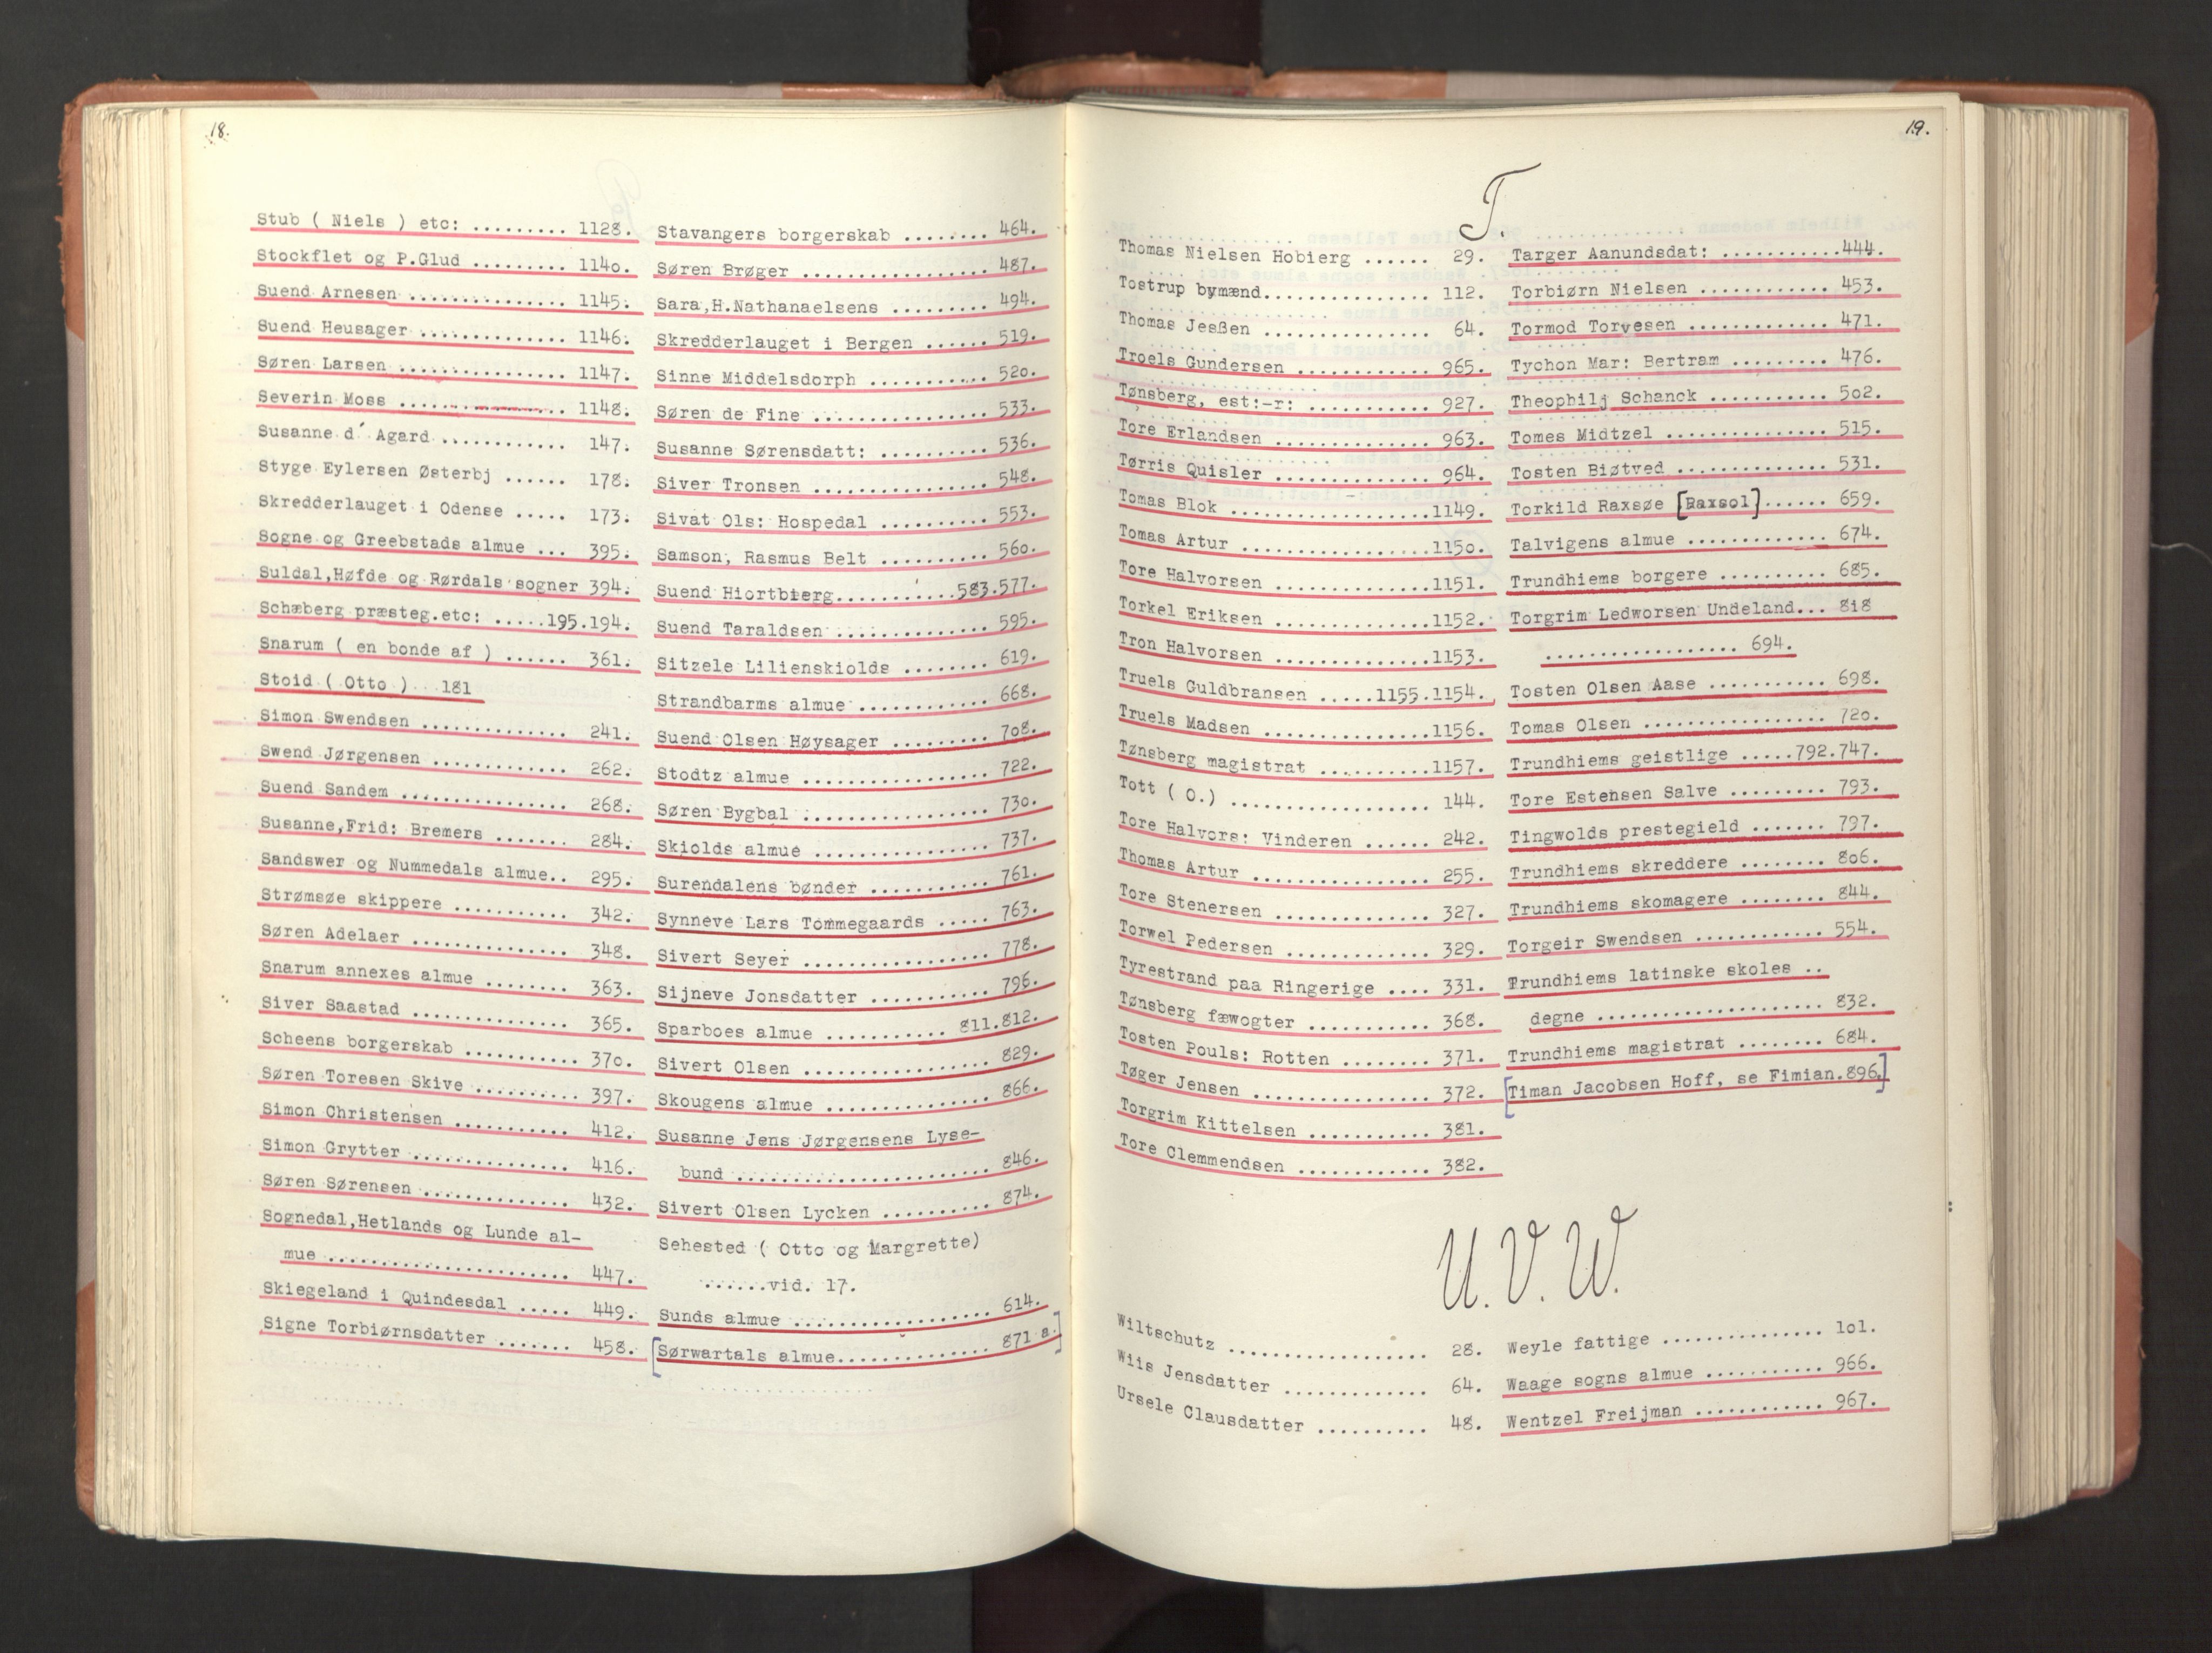 18.
Stub ( Niels ) etc: ......... 1128.
Stockflet og P.Glud ......... 1140.
Suend Arnesen ............... 1145.
Suend Heusager .............. 1146.
Søren Larsen ................ 1147.
Severin Moss ................ 1148.
Susanne d´ Agard ............ 147.
Styge Eylersen Østerbj ...... 178.
Skredderlauget i Odense ..... 173.
Sogne og Greebstads almue ... 395.
Suldal,Høfde og Rørdals sogner 394.
Schæberg præsteg.etc: .....195.194.
Snarum ( en bonde af ) ...... 361.
Stoid ( Otto )...181
Simon Swendsen .............. 241.
Swend Jørgensen ............. 262.
Suend Sandem ................ 268.
Susanne,Frid: Bremers ....... 284.
Sandswer og Nummedals almue.. 295.
Strømsøe skippere ........... 342.
Søren Adelaer ............... 348.
Snarum annexes almue ........ 363.
Siver Saastad ............... 365.
Scheens borgerskab .......... 370.
Søren Toresen Skive ......... 397.
Simon Christensen ........... 412.
Simon Grytter ............... 416.
Søren Sørensen .............. 432.
Sognedal,Hetlands og Lunde al-
mue ....................... 447.
Skiegeland i Quindesdal ..... 449.
Signe Torbiørnsdatter ....... 458.
Stavangers borgerskab ........ 464.
Søren Brøger ................. 487.
Sara,H.Nathanaelsens ......... 494.
Skredderlauget i Bergen ...... 519.
Sinne Middelsdorph ........... 520.
Søren de Fine ................ 533.
Susanne Sørensdatt: .......... 536.
Siver Tronsen ................ 548.
Sivat Ols: Hospedal .......... 553.
Samson, Rasmus Belt .......... 560.
Suend Hiortbierg...........583.577.
Suend Taraldsen .............. 595.
Sitzele Lilienskiolds ........ 619.
Strandbarms almue ............ 668.
Suend Olsen Høysager ......... 708.
Stodtz almue ................. 722.
Søren Bygbal ................. 730.
Skiolds almue ................ 737.
Surendalens bønder ........... 761.
Synneve Lars Tommegaards ..... 763.
Sivert Seyer ................. 778.
Sijneve Jonsdatter ........... 796.
Sparboes almue ........... 811.812.
Sivert Olsen ................. 829.
Skougens almue ............... 866.
Susanne Jens Jørgensens Lyse-
bund ....................... 846.
Sivert Olsen Lycken .......... 874.
Sehested ( Otto og Margrette)
.......vid. 17.
Sunds almue .................. 614.
[Sørwartals almue.............. 871 a.]
19.
T.
Thomas Nielsen Hobierg ...... 29.
Tostrup bymænd............... 112.
Thomas Jesßen ............... 64.
Troels Gundersen ............ 965.
Tønsberg, est:-r: ........... 927.
Tore Erlandsen .............. 963.
Tørris Quisler .............. 964.
Tomas Blok ..................1149.
Tomas Artur .................1150.
Tore Halvorsen ..............1151.
Torkel Eriksen ..............1152.
Tron Halvorsen ..............1153.
Truels Guldbransen .....1155.1154.
Truels Madsen ...............1156.
Tønsberg magistrat ..........1157.
Tott ( O.) .................. 144.
Tore Halvors: Vinderen ...... 242.
Thomas Artur ................ 255.
Tore Stenersen .............. 327.
Torwel Pedersen ............. 329.
Tyrestrand paa Ringerige .... 331.
Tønsberg fæwogter ........... 368.
Tosten Pouls: Rotten ........ 371.
Tøger Jensen ................ 372.
Torgrim Kittelsen ........... 381.
Tore Clemmendsen ............ 382.
Targer Aanundsdat: ...........444.
Torbiørn Nielsen ............ 453.
Tormod Torvesen ............. 471.
Tychon Mar: Bertram ......... 476.
Theophilj Schanck ........... 502.
Tomes Midtzel ............... 515.
Tosten Biøtved .............. 531.
Torkild Raxsøe [Raxsol]...... 659.
Talvigens almue ............. 674.
Trundhiems borgere .......... 685.
Torgrim Ledworsen Undeland... 818
.................. 694.
Tosten Olsen Aase ........... 698.
Tomas Olsen ................. 720.
Trundhiems geistlige .....792.747.
Tore Estensen Salve ......... 793.
Tingwolds prestegield ....... 797.
Trundhiems skreddere ........ 806.
Trundhiems skomagere ........ 844.
Torgeir Swendsen ............ 554.
Trundhiems latinske skoles ..
degne ..................... 832.
Trundhiems magistrat ........ 684.
[Timan Jacobsen Hoff, se Fimian.896.]
U. V. W.
Wiltschutz .................. 28.
Wiis Jensdatter ............. 64.
Ursele Clausdatter .......... 48.
Weyle fattige ............... 101.
Waage sogns almue ........... 966.
Wentzel Freijman ............ 967.